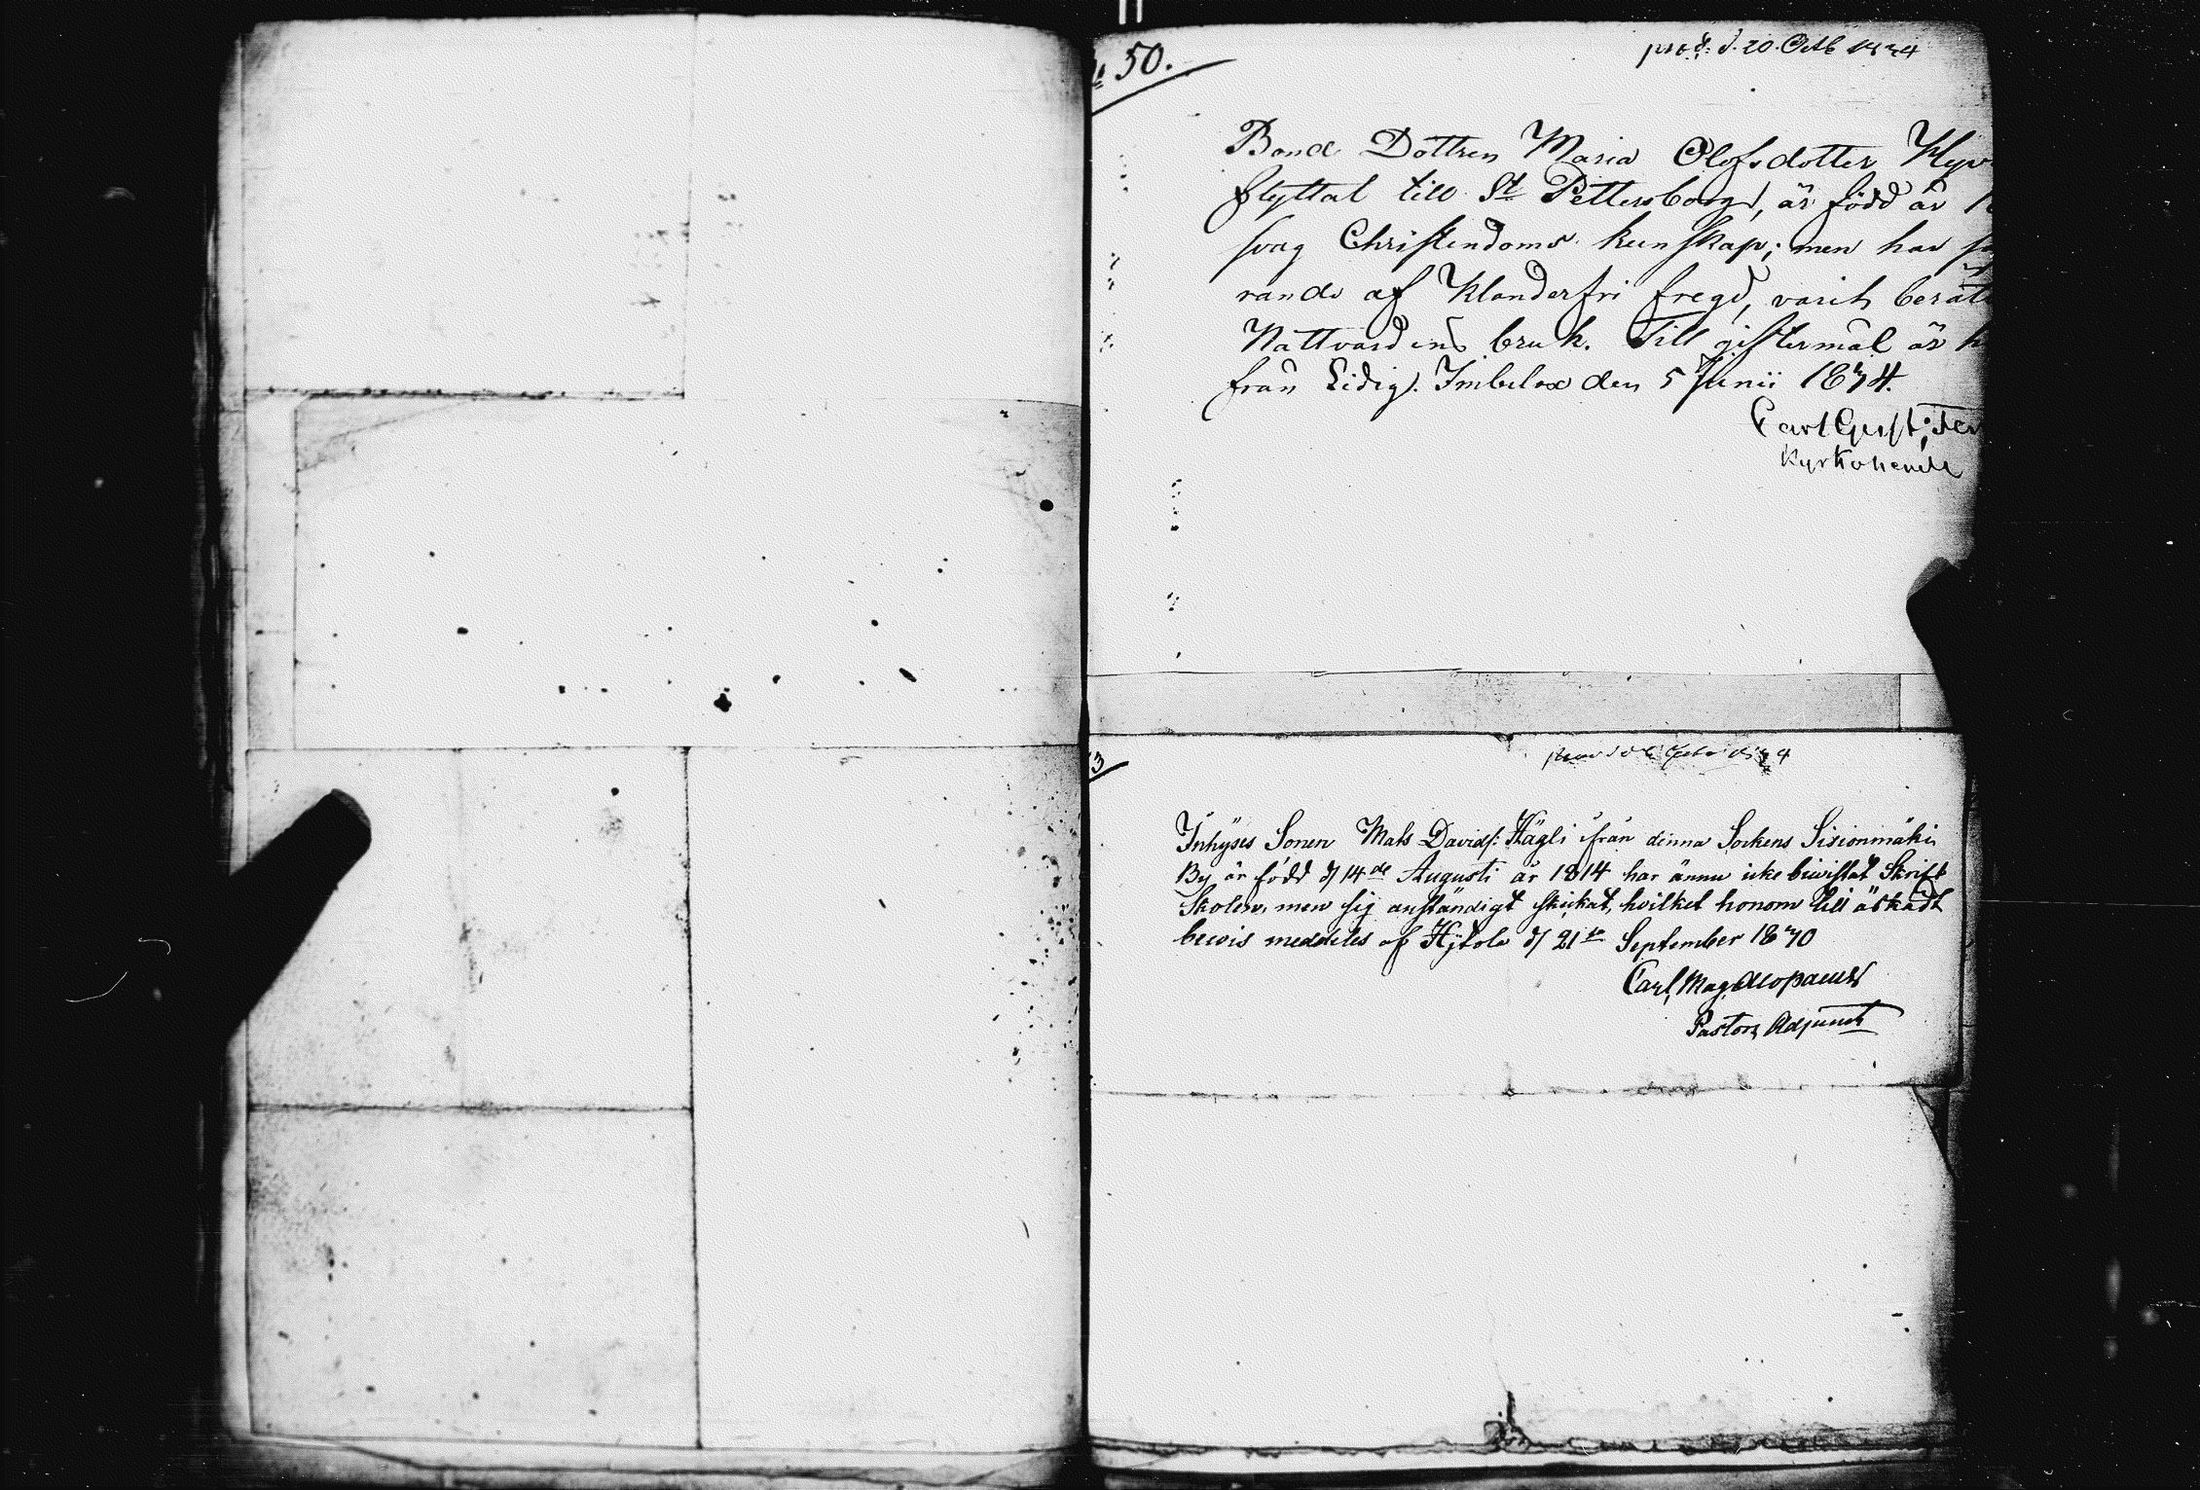 50.
prod: d. 20 Octb 1834
Bond Dottren Maria Olofsdotter
flyttat till St Pettersborg, är född år
svag Christendoms kunskap; men har
rande af Klanderfri fregd, varit
Nattvardens bruk. Till giftermål är
från Ledig. Imbilax den 5 Junii 1834.
Carl Gust:
Kyrkoherde
3
Inhyses Sonen Mats Davids: Hägli ifrån denna Sockens Sisionmäki
By är född d 14de Augusti år 1814 har ännu icke biwistat Skrift
Skolen, men sig anständigt skickat, hvilket honom till äskadt
bewis meddeles af Hytola d 21ta September 1830
Carl Mag Alopaeus
Pastors Adjunct